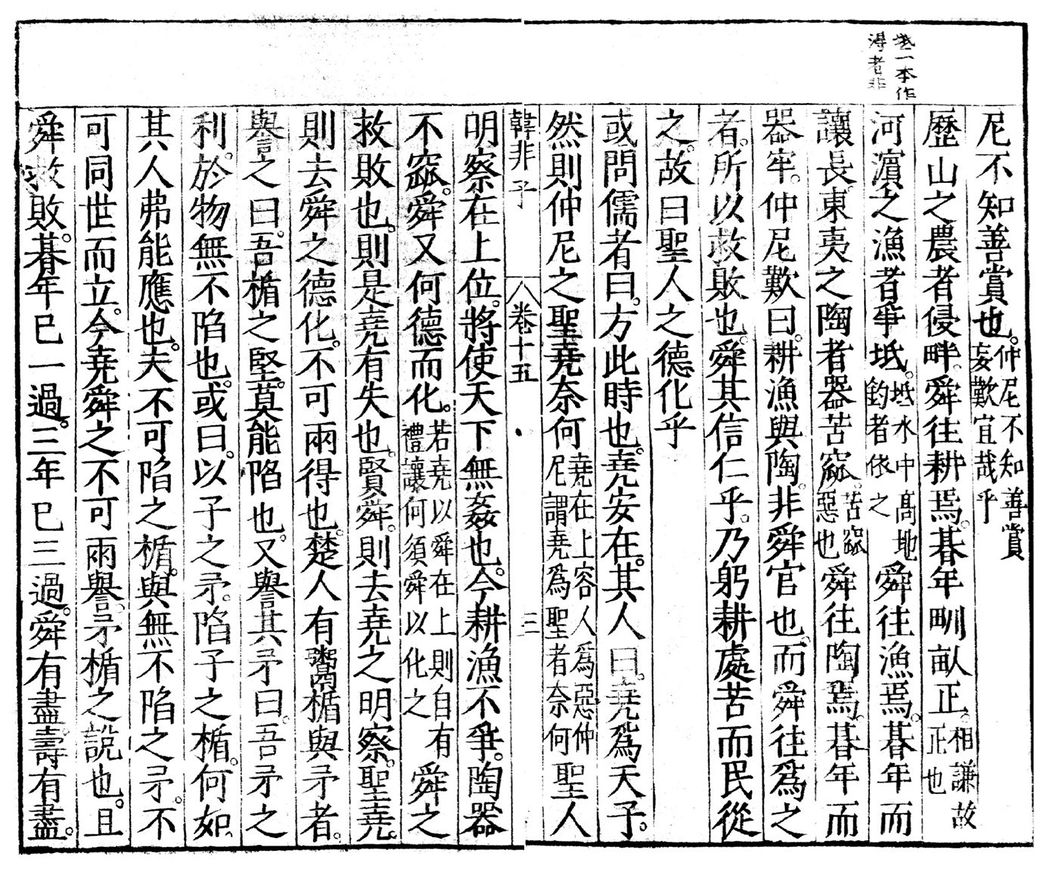 一本作
者非
尼不知善賞也。仲尼不知善賞妄歎宜哉乎
歷山之農者侵畔。舜往耕焉。朞年甽畝正。相謙故正也
河濵之漁者爭坻。坻水中髙地釣者依之舜往漁焉。朞年而
讓長。東夷之陶者器苦窳。苦窳惡也舜往陶焉。朞年而
器牢。仲尼歎曰。耕漁與陶。非舜官也。而舜往爲之
者。所以救敗也。舜其信仁乎。乃躬耕處苦而民從
之。故曰聖人之德化乎
或問儒者曰。方此時也。堯安在。其人曰。堯爲天子。
然則仲尼之聖堯奈何堯在上容人爲惡仲尼謂堯爲聖者奈何聖人
韓非子 卷十五 三
明察在上位。將使天下無姦也。今耕漁不爭。陶器
不窳。舜又何德而化。若堯以舜在上則自有禮讓何須舜以化之舜之
救敗也。則是堯有失也。賢舜。則去堯之明察。聖堯
則去舜之德化。不可兩得也。楚人有鬻楯與矛者。
譽之曰。吾楯之堅。莫能陷也。又譽其矛曰。吾矛之
利。於物無不陷也。或曰。以子之矛。陷子之楯。何如。
其人弗能應也。夫不可陷之楯。與無不陷之矛。不
可同世而立。今堯舜之不可兩譽。矛楯之說也。且
舜救敗。朞年已一過。三年已三過。舜有盡。壽有盡。